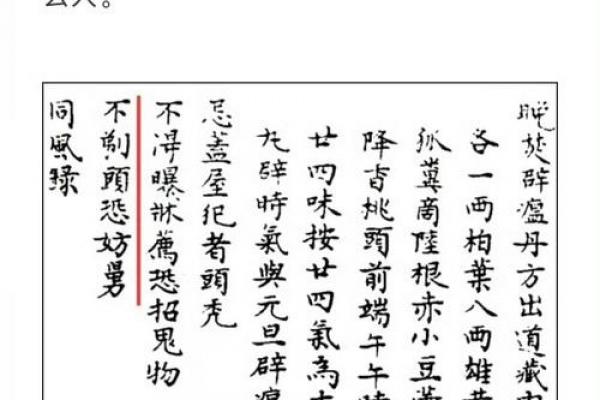 晚焚辟瘟丹方出道藏
各一两柏葉八两雄
狐糞商陸根赤小豆
降香桃頭前端午午
廿四味按廿四氣為
丸辟時氣與元旦辟瘟
忌蓋屋犯者頭禿
不淂曝牀薦恐招鬼物
不剃頭恐妨舅
同風錄